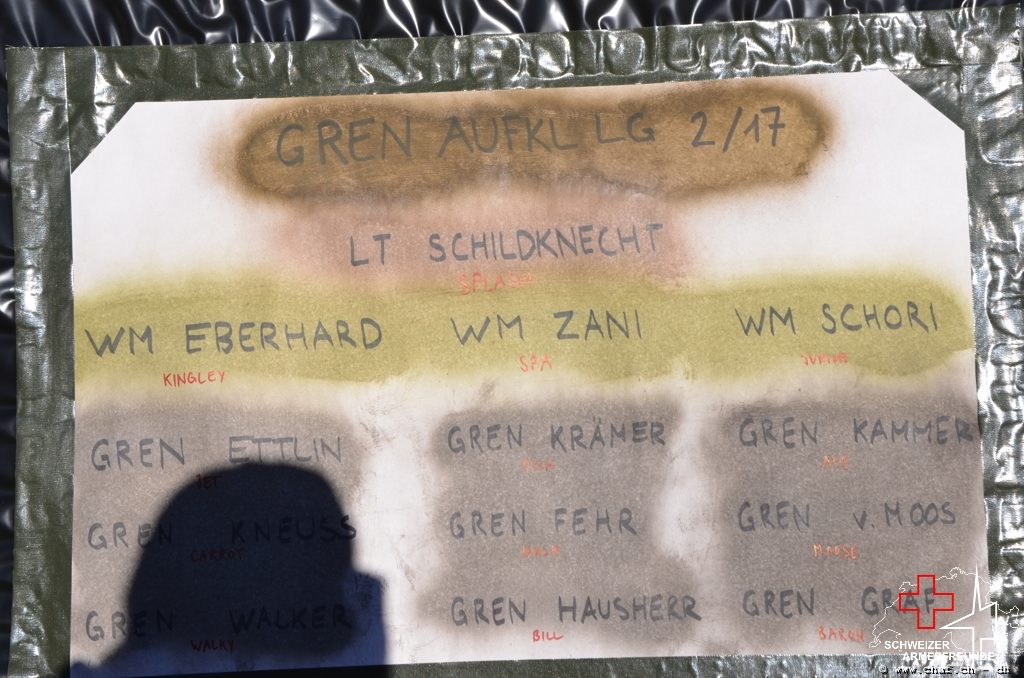 GREN AUFKL LG 2/17
LT SCHILDKNECHT
SPLASH
WM EBERHARD WM ZANI WM SCHORI
KINGLEY SPA JUNIOR
GREN ETTLIN GREN KRÄMER GREN KAMMER
JET
GREN KNEUSS GREN FEHR GREN v. MOOS
CARROT MOOSE
GREN WALKER GREN HAUSHERR GREN GRAF
WALKY BILL
SCHWEIZER
ARMEEFREUNDE